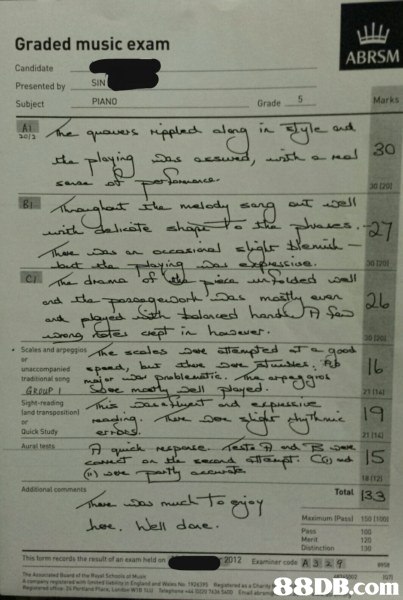 Graded music exam
ABRSM
Candidate
Presented by SIN
Subject PIANO Grade 5
Marks
A1 The quavers rippled along in style and
2012
the playing was assured, with a real
30
sense of performance.
30 (20)
B1 Throughout the melody sang out well
with delicate shape to the phrases.
27
There was an occasional slight blemish -
but the playing was expressive.
30 (20)
C1 The drama of the piece unfolded well
and the passagework was mostly even
26
and played with balanced hands. A few
wrong notes crept in however.
30 (20)
Scales and arpeggios The scales were attempted at a good
or
unaccompanied speed, but there were stumbles.
16
traditional song major was problematic. The arpeggios
GROUP 1 were mostly well played.
21 (14)
Sight-reading This was a fluent and expressive
(and transposition) reading. There were slight rhythmic
19
or
Quick Study errors.
21 (14)
Aural tests A quick response. Tests A and B were
correct on the second attempt. C(i) and
15
(ii) were partly accurate.
18 (12)
Additional comments
Total 133
There was much to enjoy
here. Well done.
Maximum (Pass) 150 (100)
Pass 100
Merit 120
Distinction 130
This form records the result of an exam held on 2012 Examiner code A 3 2 9
The Associated Board of the Royal Schools of Music
88DB.com